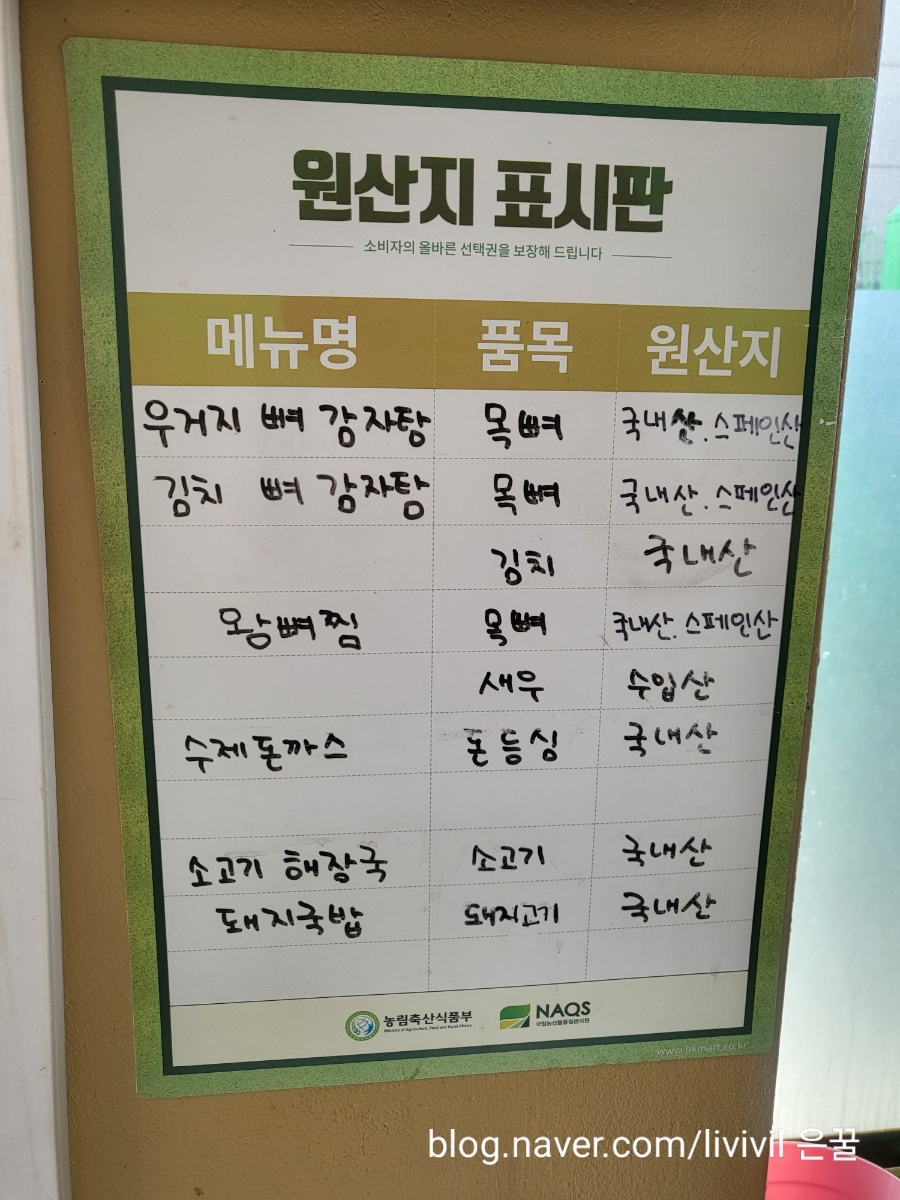 원산지 표시판
소비자의 올바른 선택권을 보장해 드립니다
메뉴명 품목 원산지
우거지 뼈 감자탕 목뼈 국내산.스페인산
김치 뼈 감자탕 목뼈 국내산.스페인산
김치 국내산
왕뼈찜 목뼈 국내산.스페인산
새우 수입산
수제돈까스 돈등심 국내산
소고기 해장국 소고기 국내산
돼지국밥 돼지고기 국내산
농림축산식품부 NAQS
Ministry of Agriculture, Food and Rural Affairs 국립농산물품질관리원
www.bkmart.co.kr
blog.naver.com/livivil 은꿀